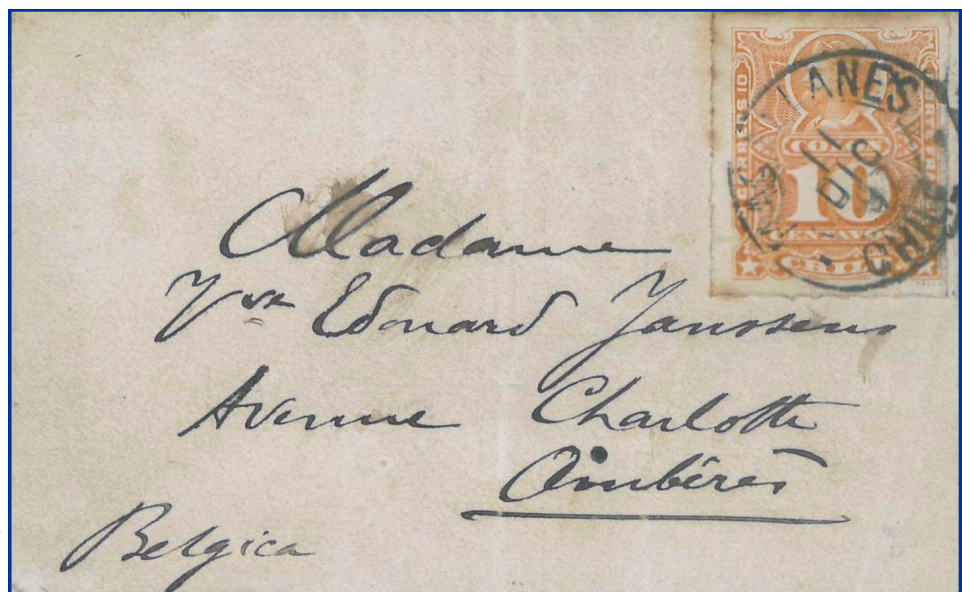 COLON
10
CENTAVOS
CHILE
CHILE
Madame
Vve Edouard Janssens
Avenue Charlotte
Ambérès
Belgica